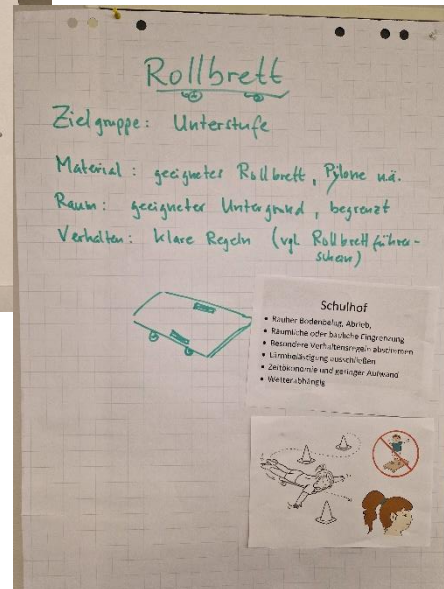 Rollbrett
Zielgruppe: Unterstufe
Material: geeignetes Rollbrett, Pylone u.ä.
Raum: geeigneter Untergrund, begrenzt
Verhalten: klare Regeln (vgl. Rollbrettführer-
schein)
Schulhof
• Rauher Bodenbelag, Abrieb,
• Räumliche oder bauliche Eingrenzung
• Besondere Verhaltensregeln abstimmen
• Lärmbelästigung ausschließen
• Zeitökonomie und geringer Aufwand
• Wetterabhängig